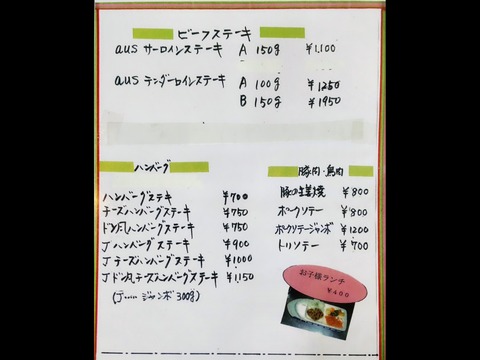 ビーフステーキ
aus サーロインステーキ A 150g ¥1,100
aus テンダーロインステーキ A 100g ¥1250
B 150g ¥1950
ハンバーグ
ハンバーグステキ ¥700
チーズハンバーグステーキ ¥750
ドンガバチョハンバーグステーキ ¥750
Jハンバーグステーキ ¥900
Jチーズハンバーグステーキ ¥1000
¥1,150
(J…… ジャンボ 300g)
豚肉・鳥肉
豚の生姜焼 ¥800
ポークソテー ¥800
ポークソテージャンボ ¥1200
トリソテー ¥700
お子様ランチ
¥400